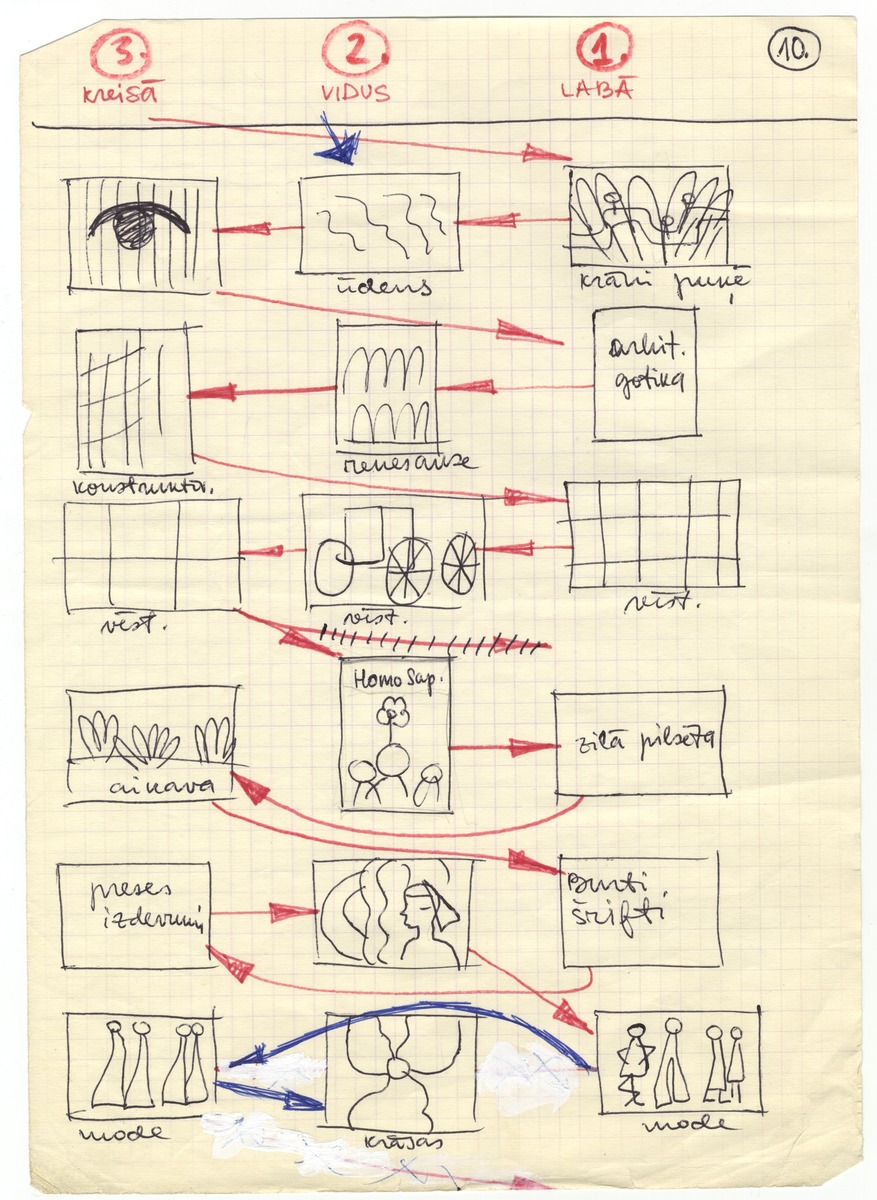 3.
2.
1.
10.
kreisā
VIDUS
LABĀ
ūdens
krāni puķē
arhit.
gotika
renesanse
konstruktīv.
vēst.
vēst.
vēst.
Homo Sap.
zilā pilsēta
ainava
preses
izdevumi
Burti,
šrifti
mode
krāsas
mode